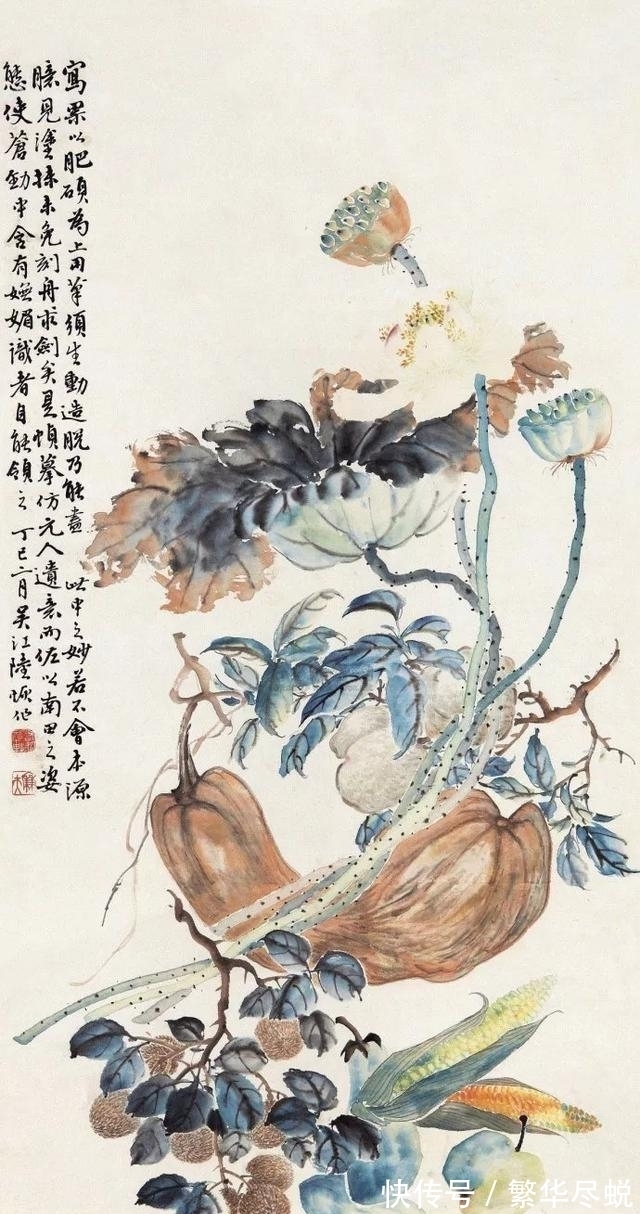 寫果以肥碩為上用筆須生動造脫乃能盡此中之妙若不會本源
臆見塗抹未免刻舟求劍矣是幀摹仿元人遺意而佐以南田之姿
態使蒼勁中含有嫵媚識者自能領之丁巳二月吳江陸恢作
快传号 / 繁华尽蜕